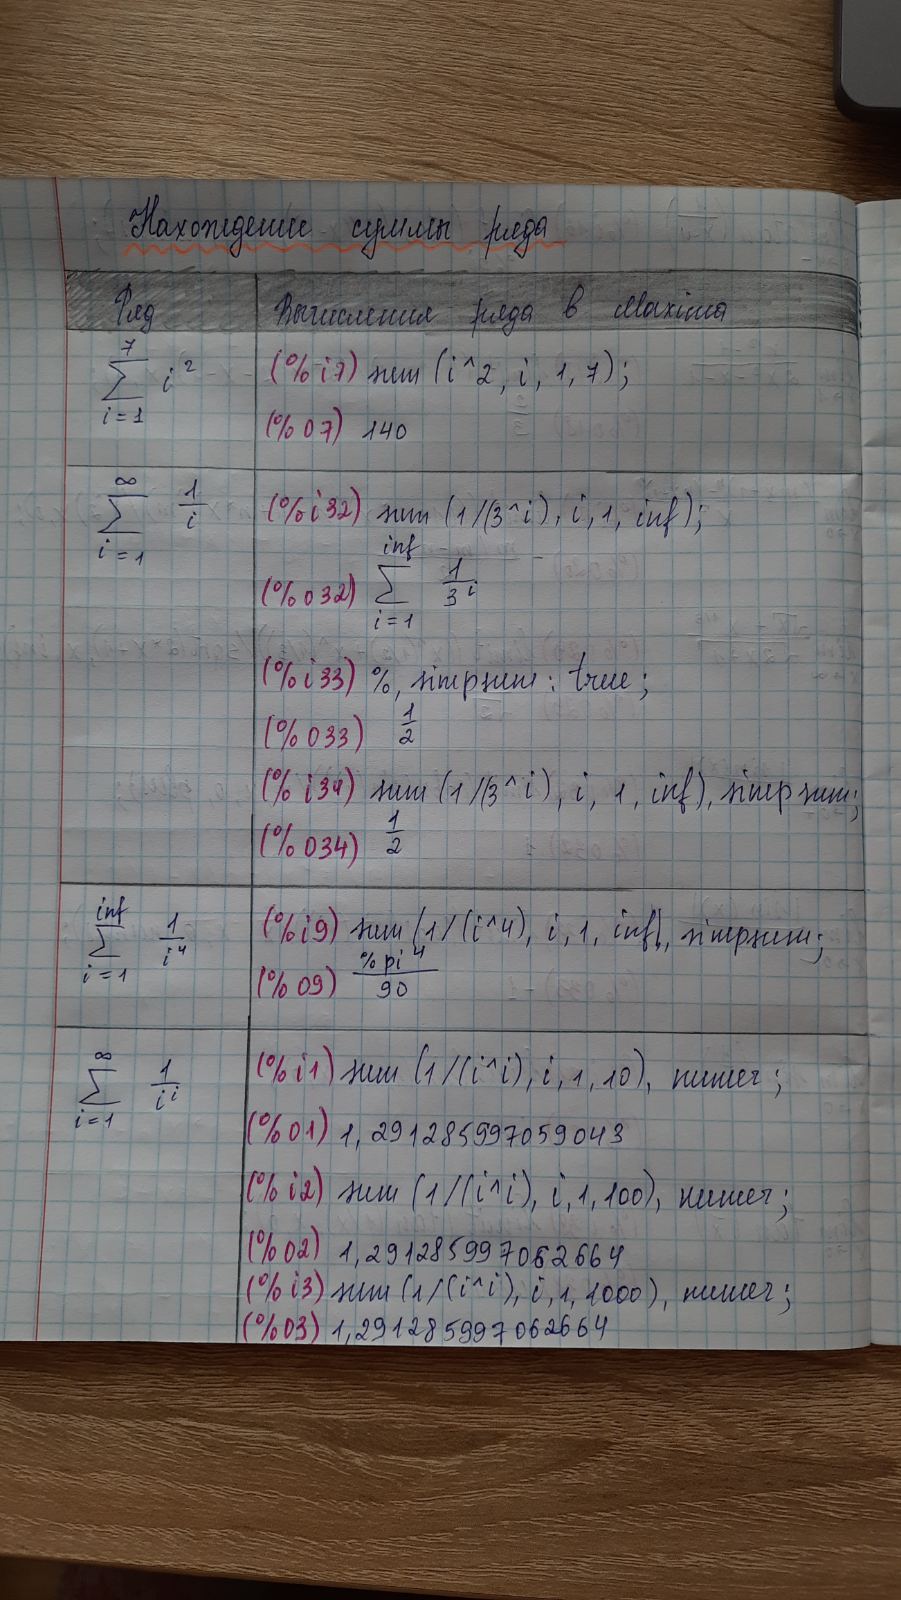 Нахождение суммы ряда
Ряд Вычисления ряда в Maxima
7
∑ i²
i=1
(%i7) sum (i^2, i, 1, 7);
(%o7) 140
∞
∑ 1/i
i=1
(%i32) sum (1/(3^i), i, 1, inf);
inf
(%o32) ∑ 1/3^i
i=1
(%i33) %, simpsum: true;
(%o33) 1/2
(%i34) sum (1/(3^i), i, 1, inf), simpsum;
(%o34) 1/2
inf
∑ 1/i⁴
i=1
(%i9) sum (1/(i^4), i, 1, inf), simpsum;
(%o9) %pi⁴/90
∞
∑ 1/i^i
i=1
(%i1) sum (1/(i^i), i, 1, 10), numer;
(%o1) 1,291285997059043
(%i2) sum (1/(i^i), i, 1, 100), numer;
(%o2) 1,291285997062664
(%i3) sum (1/(i^i), i, 1, 1000), numer;
(%o3) 1,291285997062664